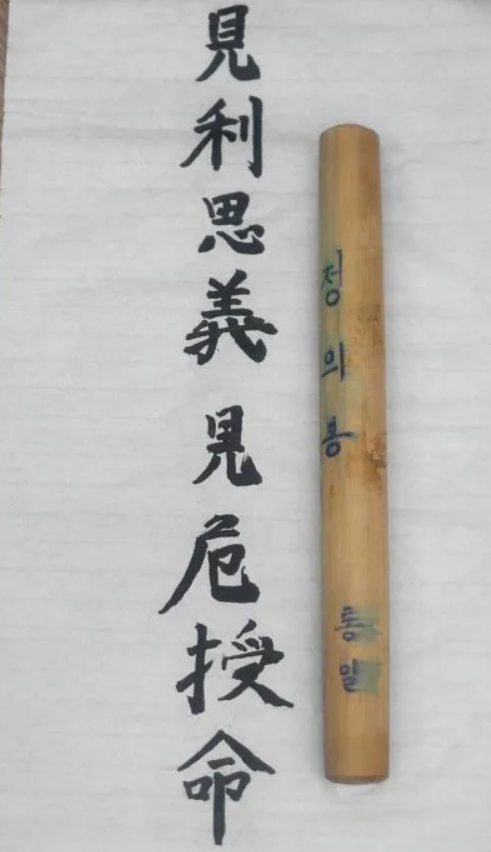 見利思義見危授命
정의봉
통일